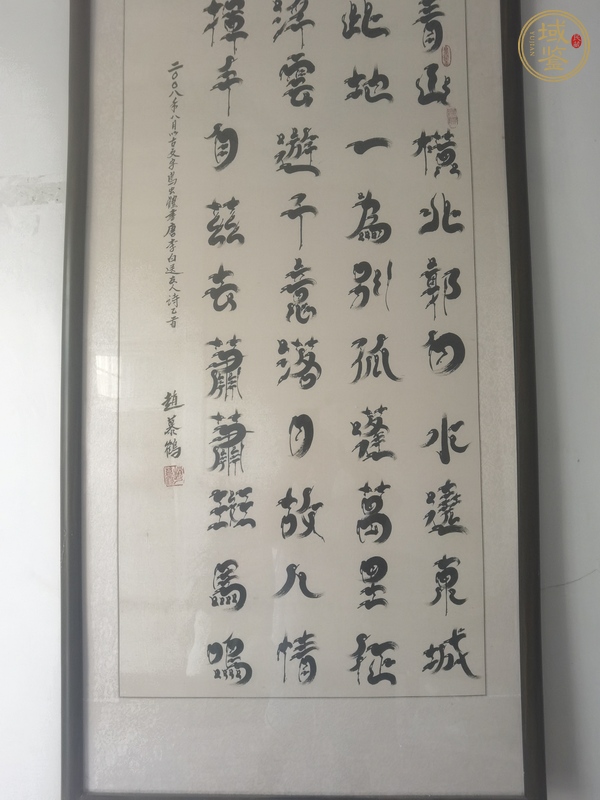 青山橫北郭白水遶東城
此地一為別孤蓬萬里征
浮雲遊子意落日故人情
揮手自茲去蕭蕭班馬鳴
二〇〇八年八月以古文字鳥虫體書唐李白送友人詩乙首
趙慕鶴
域鉴
YUJIAN